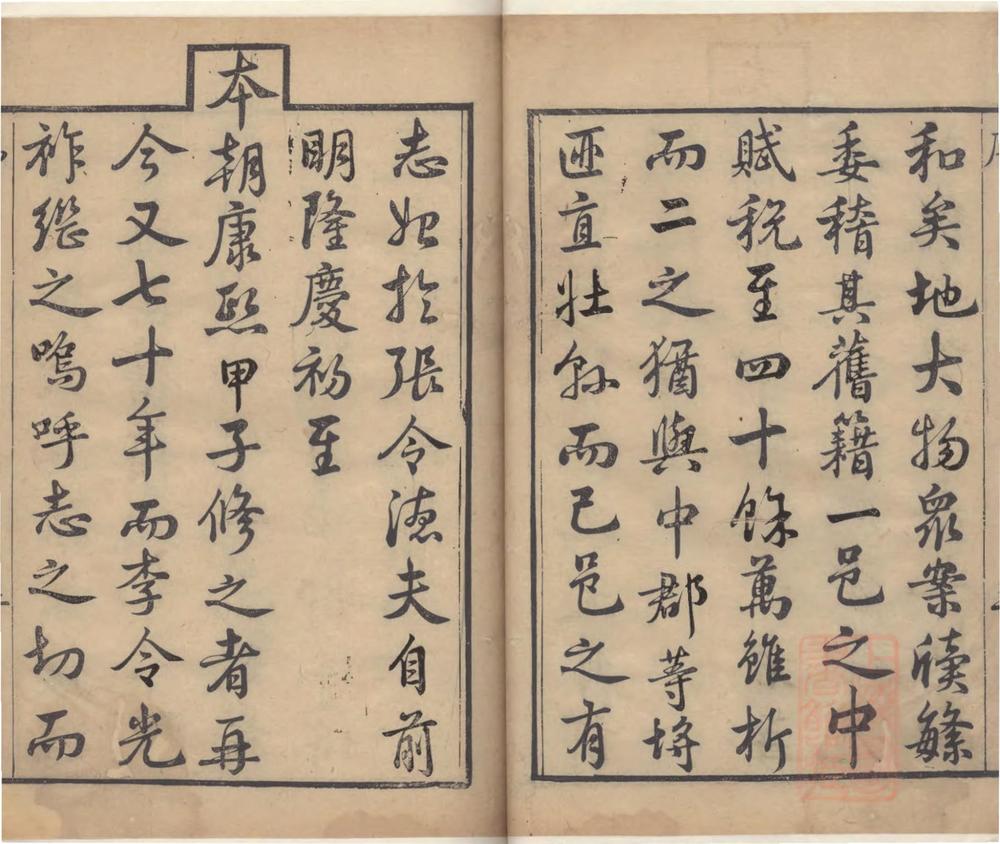 和矣地大物眾案牘繁
委稽其舊籍一邑之中
賦稅至四十餘萬雖析
而二之猶與中郡等埒
匪直壯縣而已邑之有
志始於張令德夫自前
明隆慶初至
本朝康熙甲子修之者再
今又七十年而李令光
祚繼之嗚呼志之切而